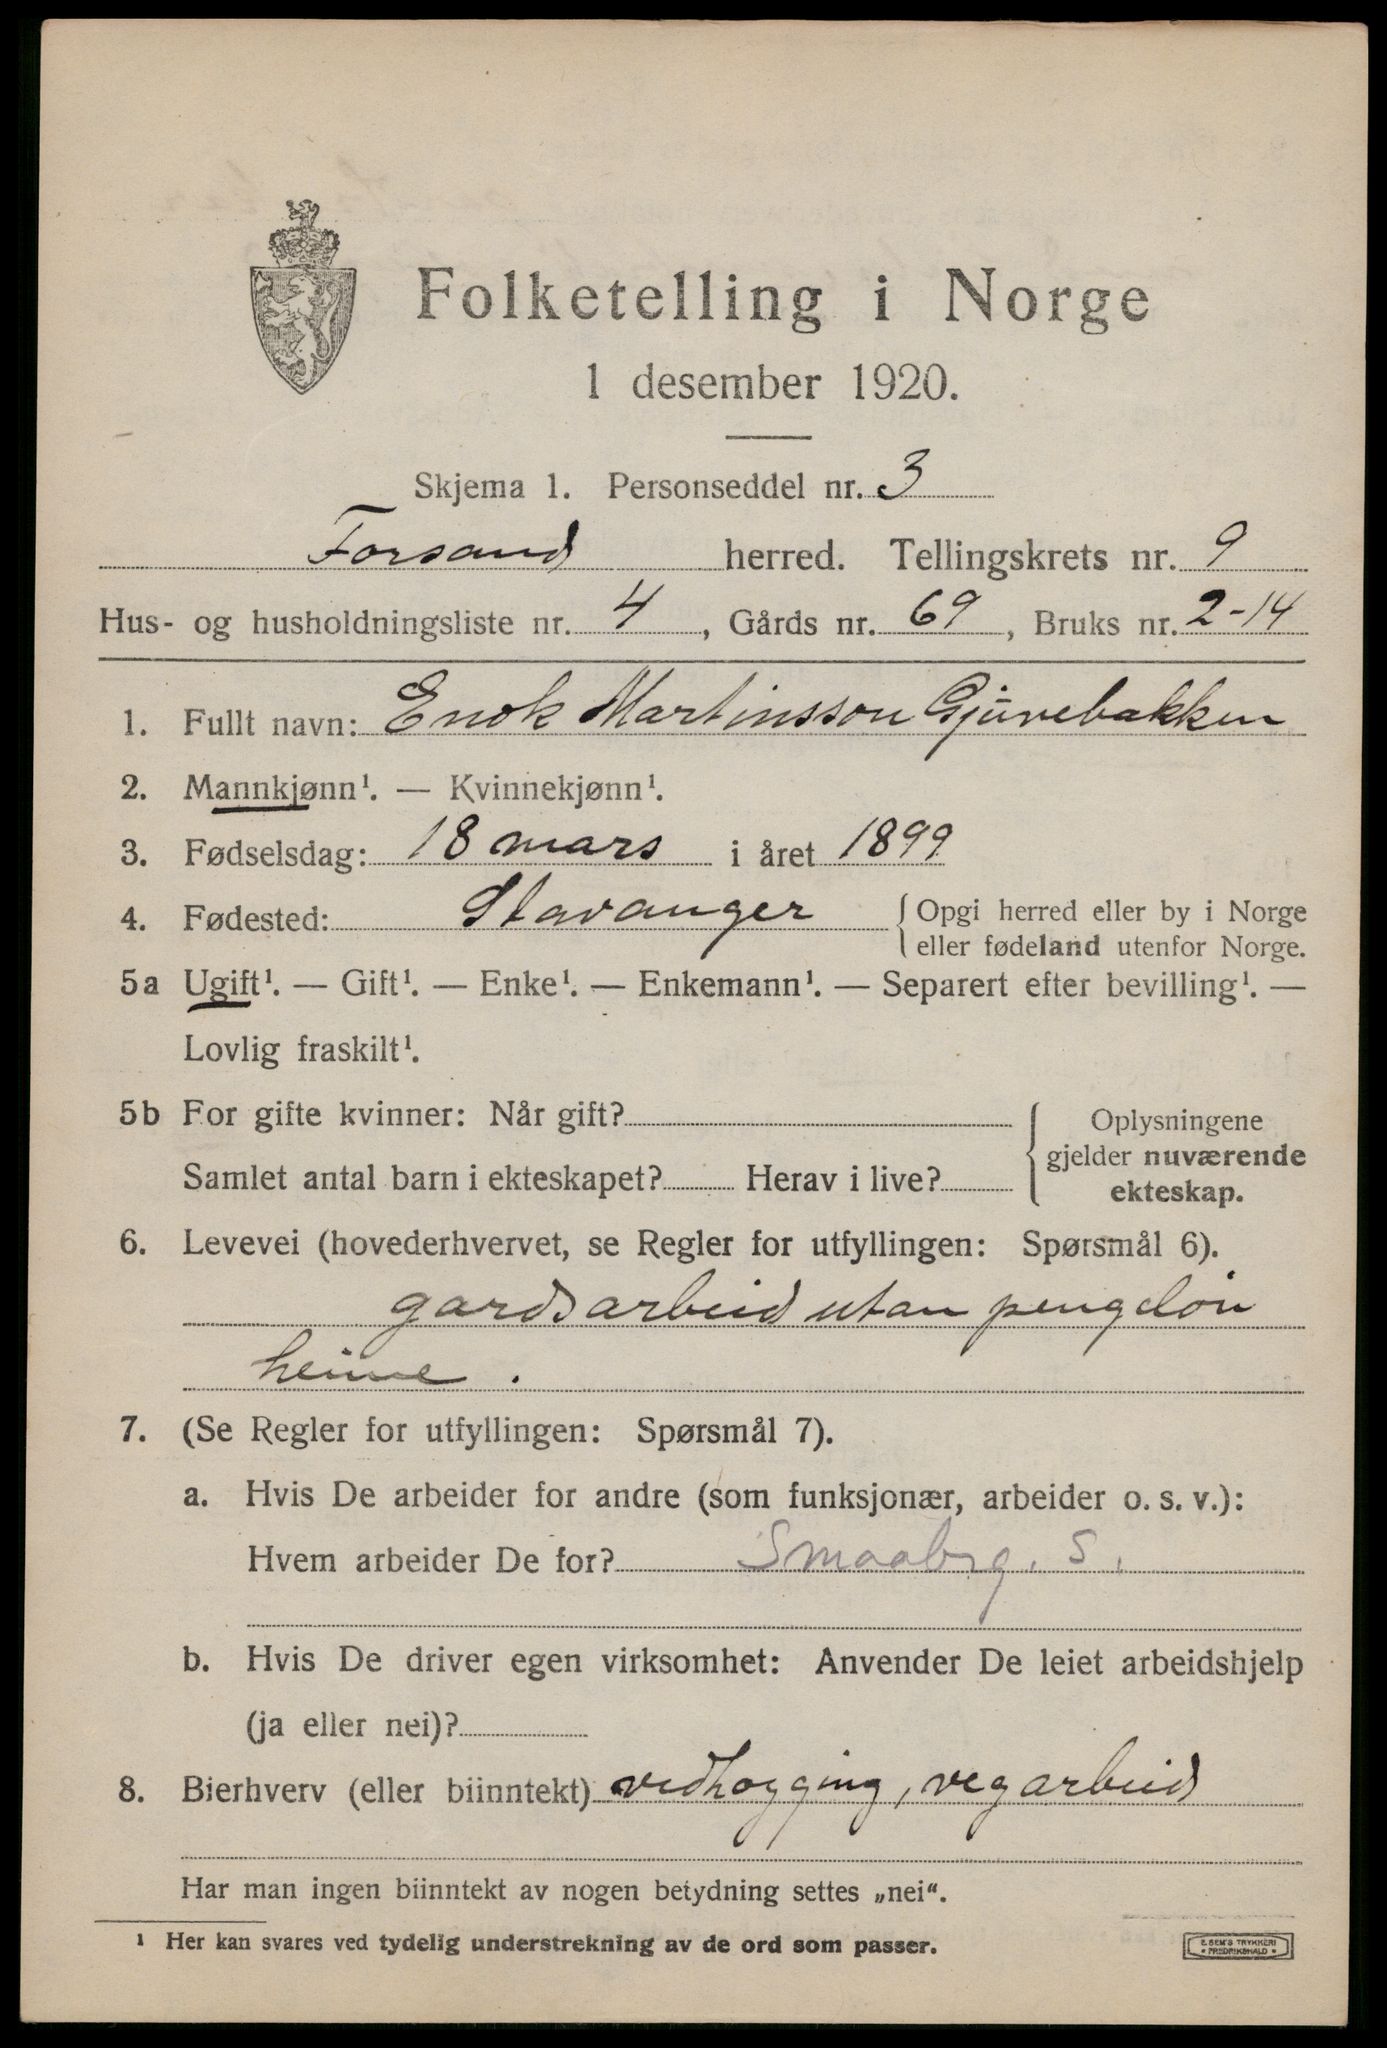 Folketelling i Norge
1 desember 1920.
Skjema 1. Personseddel nr. 3
Forsand herred. Tellingskrets nr. 9
Hus- og husholdningsliste nr. 4, Gårds nr. 69, Bruks nr. 2-14
1. Fullt navn: Enok Martinsson Gjúvebakken
2. Mannkjønn¹. — Kvinnekjønn¹.
3. Fødselsdag: 18 mars i året 1899
4. Fødested: Stavanger { Opgi herred eller by i Norge
eller fødeland utenfor Norge.
5a Ugift¹. — Gift¹. — Enke¹. — Enkemann¹. — Separert efter bevilling¹. —
Lovlig fraskilt¹.
5b For gifte kvinner: Når gift? { Oplysningene
gjelder nuværende
ekteskap.
Samlet antal barn i ekteskapet? Herav i live?
6. Levevei (hovederhvervet, se Regler for utfyllingen: Spørsmål 6).
gardsarbeid utan pengeløn
heime.
7. (Se Regler for utfyllingen: Spørsmål 7).
a. Hvis De arbeider for andre (som funksjonær, arbeider o. s. v.):
Hvem arbeider De for? Smaabrg. S.
b. Hvis De driver egen virksomhet: Anvender De leiet arbeidshjelp
(ja eller nei)?
8. Bierhverv (eller biinntekt) vedhogging, vegarbeid
Har man ingen biinntekt av nogen betydning settes „nei“.
¹ Her kan svares ved tydelig understrekning av de ord som passer.
E. SEM'S TRYKKERI
• FREDRIKSHALD •